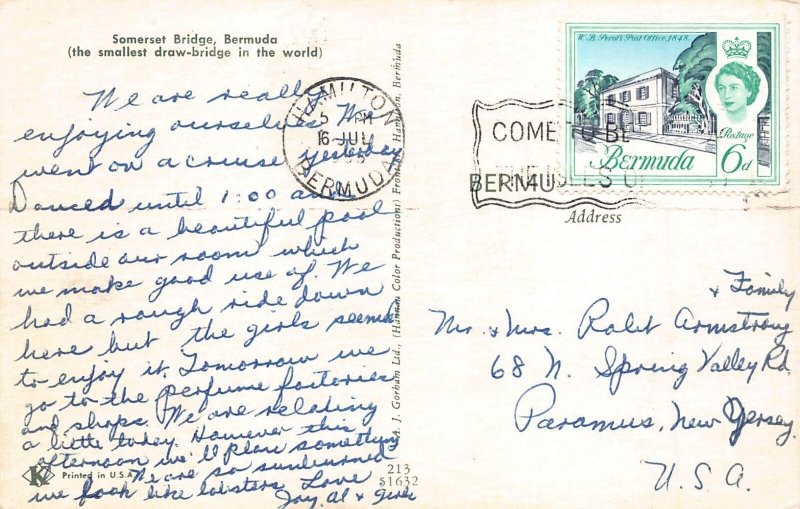 Somerset Bridge, Bermuda
(the smallest draw-bridge in the world)
We are really
enjoying ourselves. We
went on a cruise yesterday
Danced until 1:00 am.
there is a beautiful pool
outside our room which
we make good use of. We
had a rough ride down
here but the girls seemed
to enjoy it. Tomorrow we
go to the perfume factories
and shops. We are relaxing
a little today. However this
afternoon we'll plan something
We are so sunburned
we look like lobsters. Love
Joy, Al & Girls
K
Printed in U.S.A.
213
51632
A. J. Gorham Ltd., (Hannau Color Productions) Front St., Hamilton, Bermuda
HAMILTON
5 PM
16 JUL
BERMUDA
COME TO BE
BERMU
ISLES O
W. B. Perot's Post Office, 1848.
Postage
Bermuda
6d
Address
& Family
Mr. & Mrs. Robt Armstrong
68 N. Spring Valley Rd.
Paramus, New Jersey.
U.S.A.